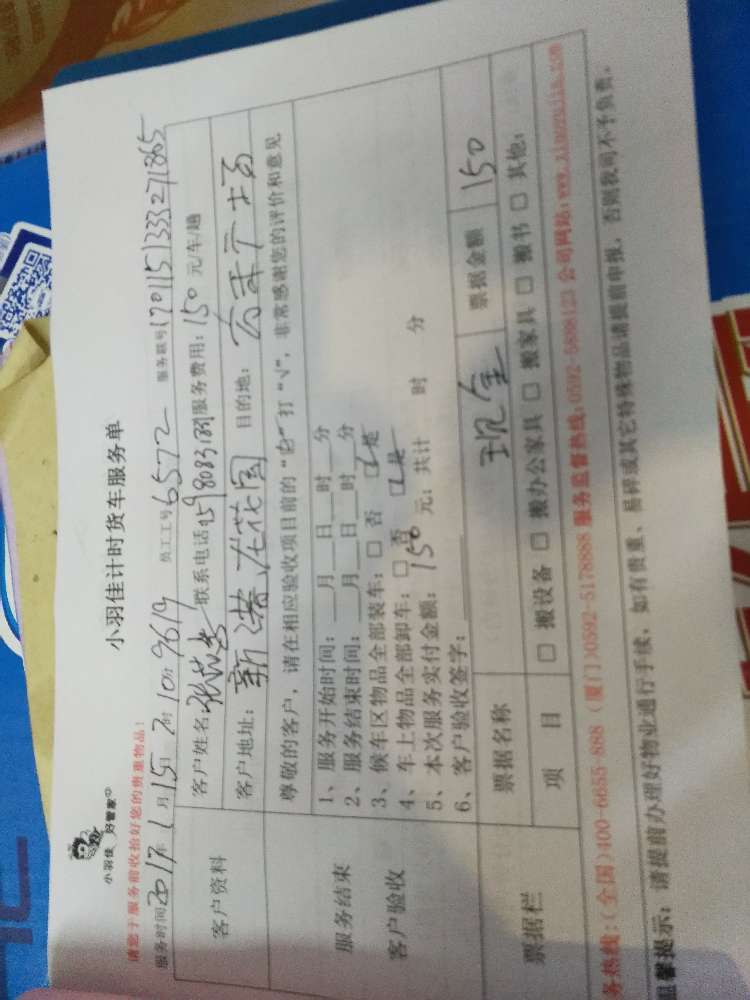 小羽佳 好管家
小羽佳计时货车服务单
请您于服务前收拾好您的贵重物品!
服务时间2017年1月15日 员工工号6572 服务联号1701151333271865
客户资料
客户姓名 联系电话 服务费用:150元/车/趟
客户地址:新港花园 目的地:
服务结束
客户验收
尊敬的客户,请在相应验收项目前的“□”打“√”,非常感谢您的评价和意见
1、服务开始时间:___月___日___时___分
2、服务结束时间:___月___日___时___分
3、候车区物品全部装车:□ 否 ☑是
4、车上物品全部卸车:□ 否 ☑是
5、本次服务实付金额:150元;共计 时 分
6、客户验收签字:
票据栏
票据名称 现金 票据金额 150
项 目 □ 搬设备 □ 搬办公家具 □ 搬家具 □ 搬书 □ 其他:
务热线:(全国)400-6655-888 (厦门)0592-5178888 服务监督热线:0592-5898123 公司网站:www.xiaoyujia.com
温馨提示:请提前办理好物业通行手续,如有贵重、易碎或其它特殊物品请提前申报,否则我司不予负责。